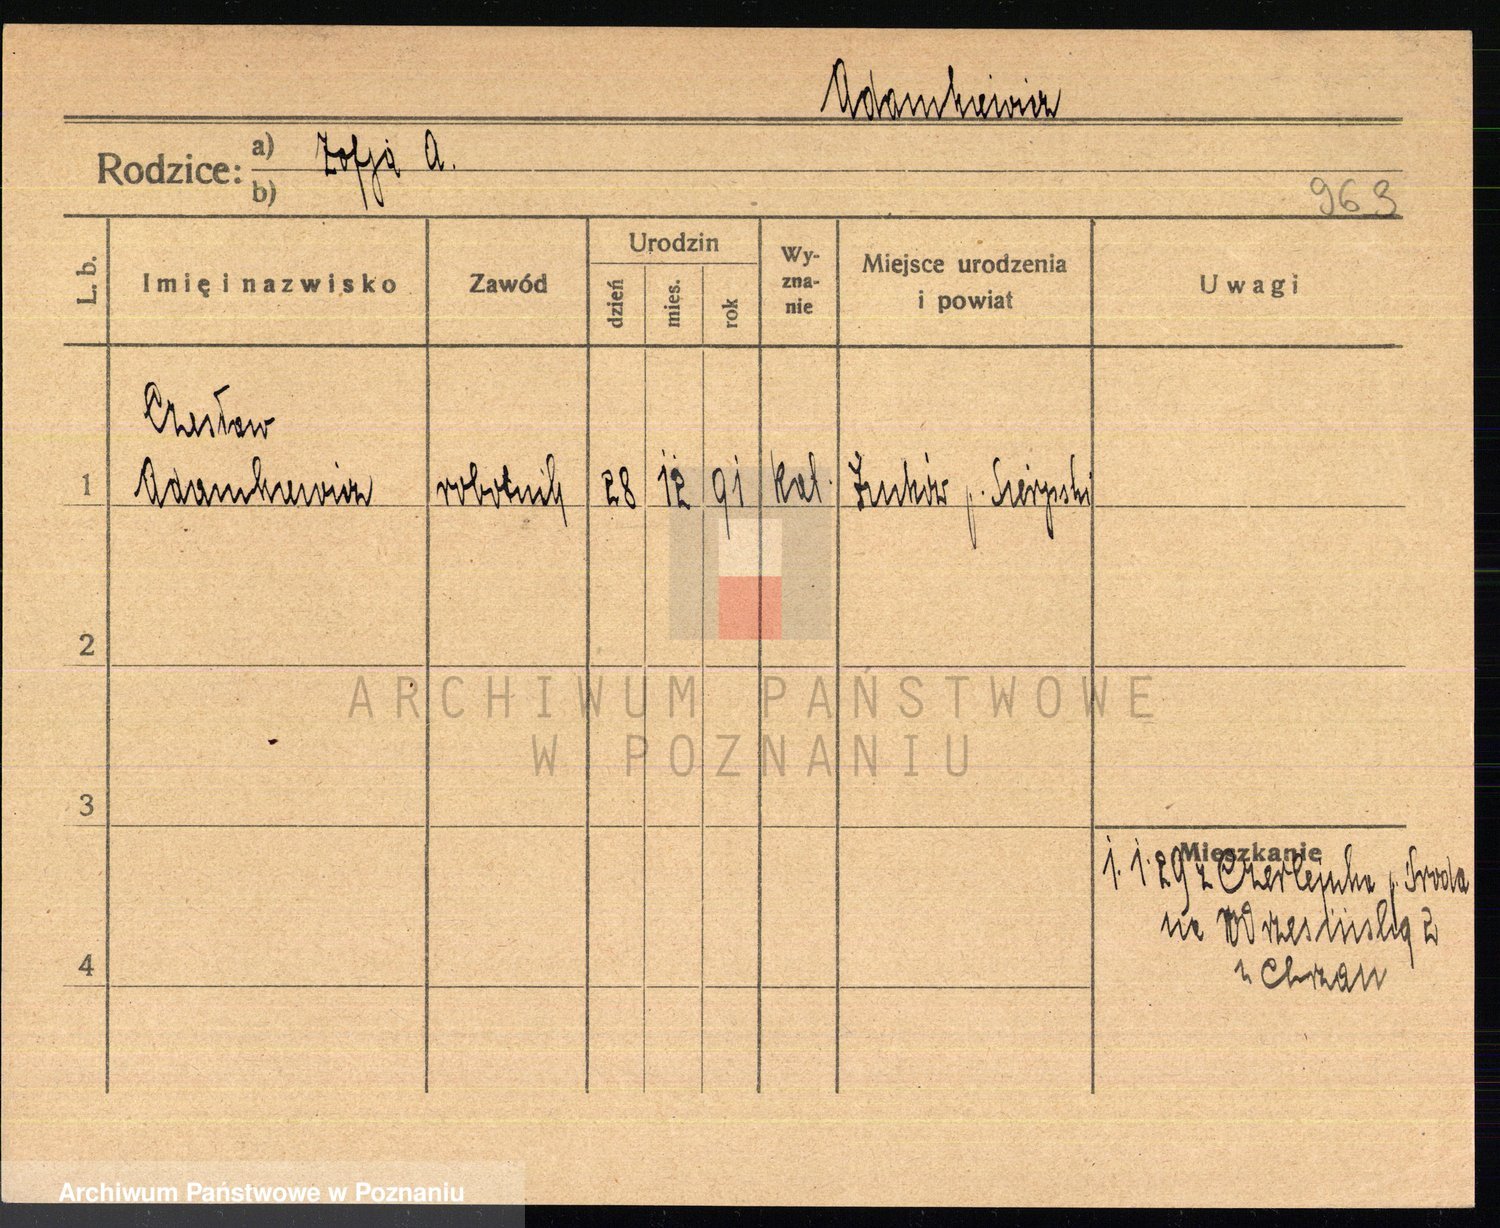 Adamkiewicz
Rodzice: a) Zofja A.
b)
963
L. b. Imię i nazwisko Zawód Urodzin dzień mies. rok Wy-zna-nie Miejsce urodzenia i powiat Uwagi
Czesław
1 Adamkiewicz robotnik 28 12 91 kat. Żuków p. Sierpski
2
ARCHIWUM PAŃSTWOWE
W POZNANIU
3
Mieszkanie
1. 1. 29 z Czerlejnka p. Środa
na Wrzesińską 2
4
z Chrzan
Archiwum Państwowe w Poznaniu